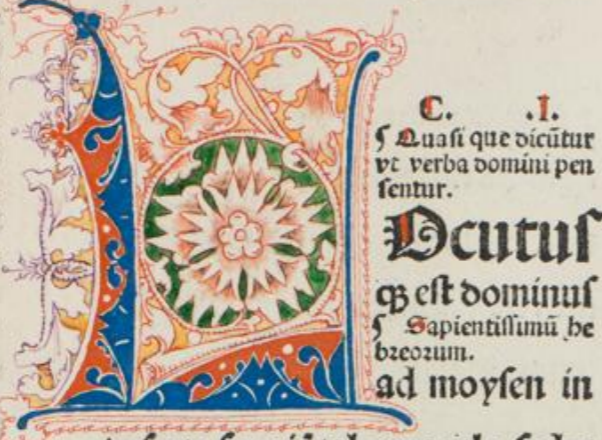 L
C. .I.
¶ Quasi que dicũtur
vt verba domini pen
sentur.
Ocutus
qꝫ est dominus
¶ Sapientissimũ he
breorum.
ad moysen in